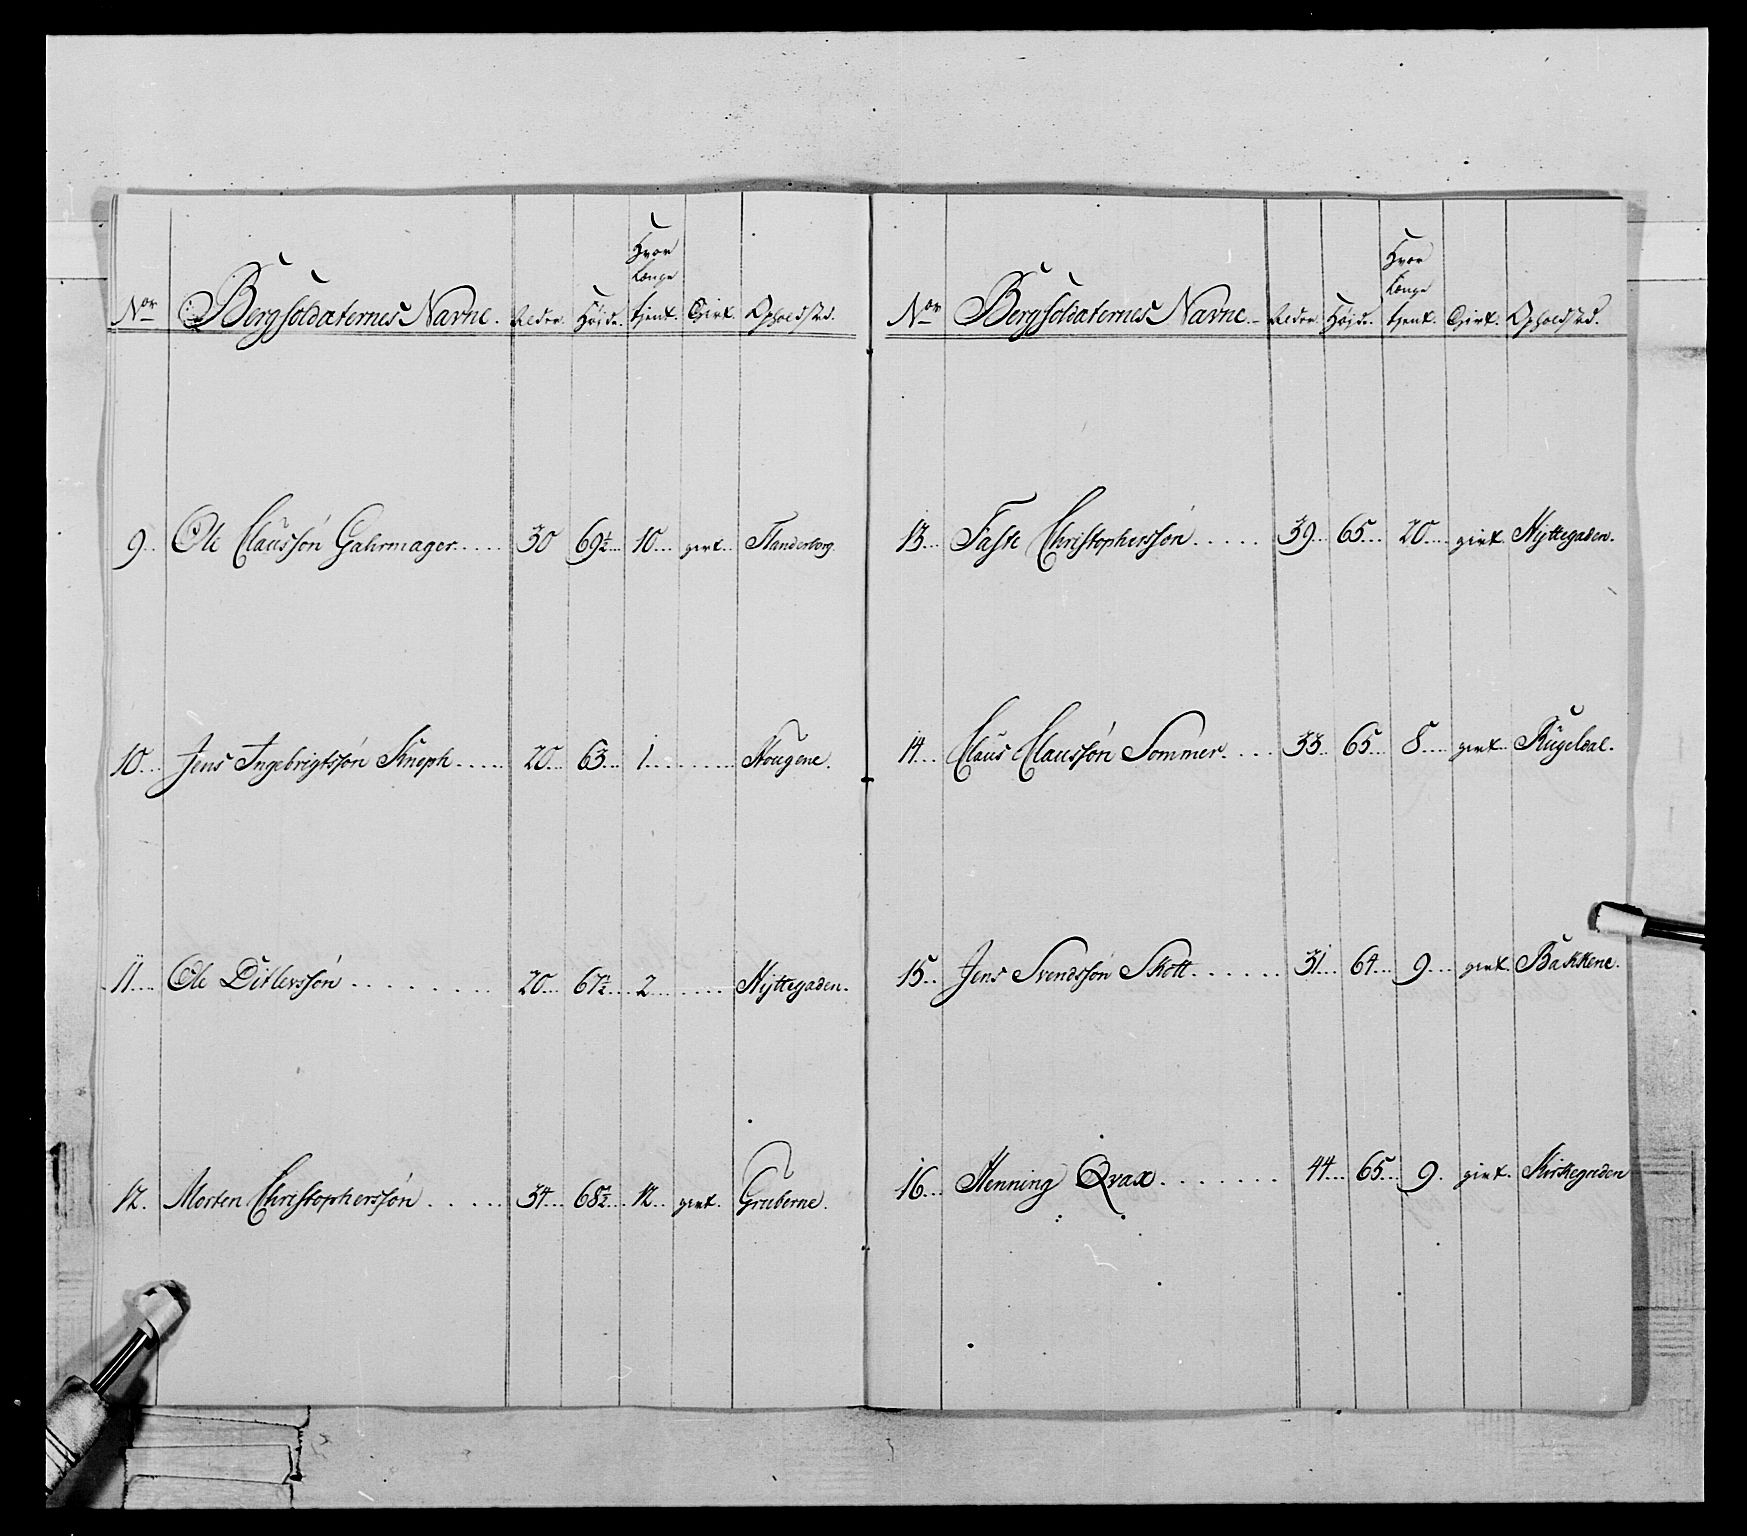 Hvor
Længe
No Bergsoldaternes Navne. Alder. Høide. tjent. Givt. Opholdstd.
9. Ole Claussøn Gahrmager 30 69½ 10 givt. Flanderborg.
10. Jens Ingebrigtsøn Kneph 20 63 1 Hougene.
11. Ole Ditlevssøn 20 67½ 2 Hyttegaden.
12. Morten Christopherssøn 34 68½ 12 givt. Gruberne.
Hvor
Længe
No Bergsoldaternes Navne. Alder. Høide. tjent. Givt. Opholdstd.
13. Faste Christopherssøn 39 65 20 givt Hyttegaden.
14. Claus Claussøn Sommer 33 65 8 givt. Kugeldal.
15. Jens Svendssøn Skott 31 64 9 givt. Bakkene.
16. Henning Qvax 44 65 9. givt. Kirkegaden